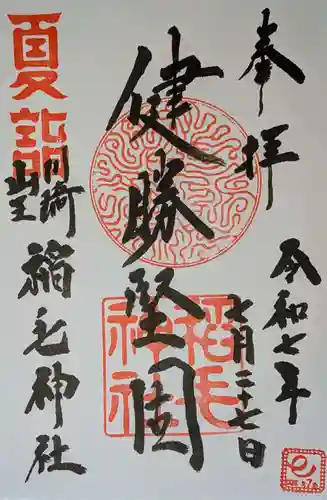 奉拝
令和七年
七月二十七日
健勝堅固
夏詣
川崎
山王
稲毛神社
稲毛
神社